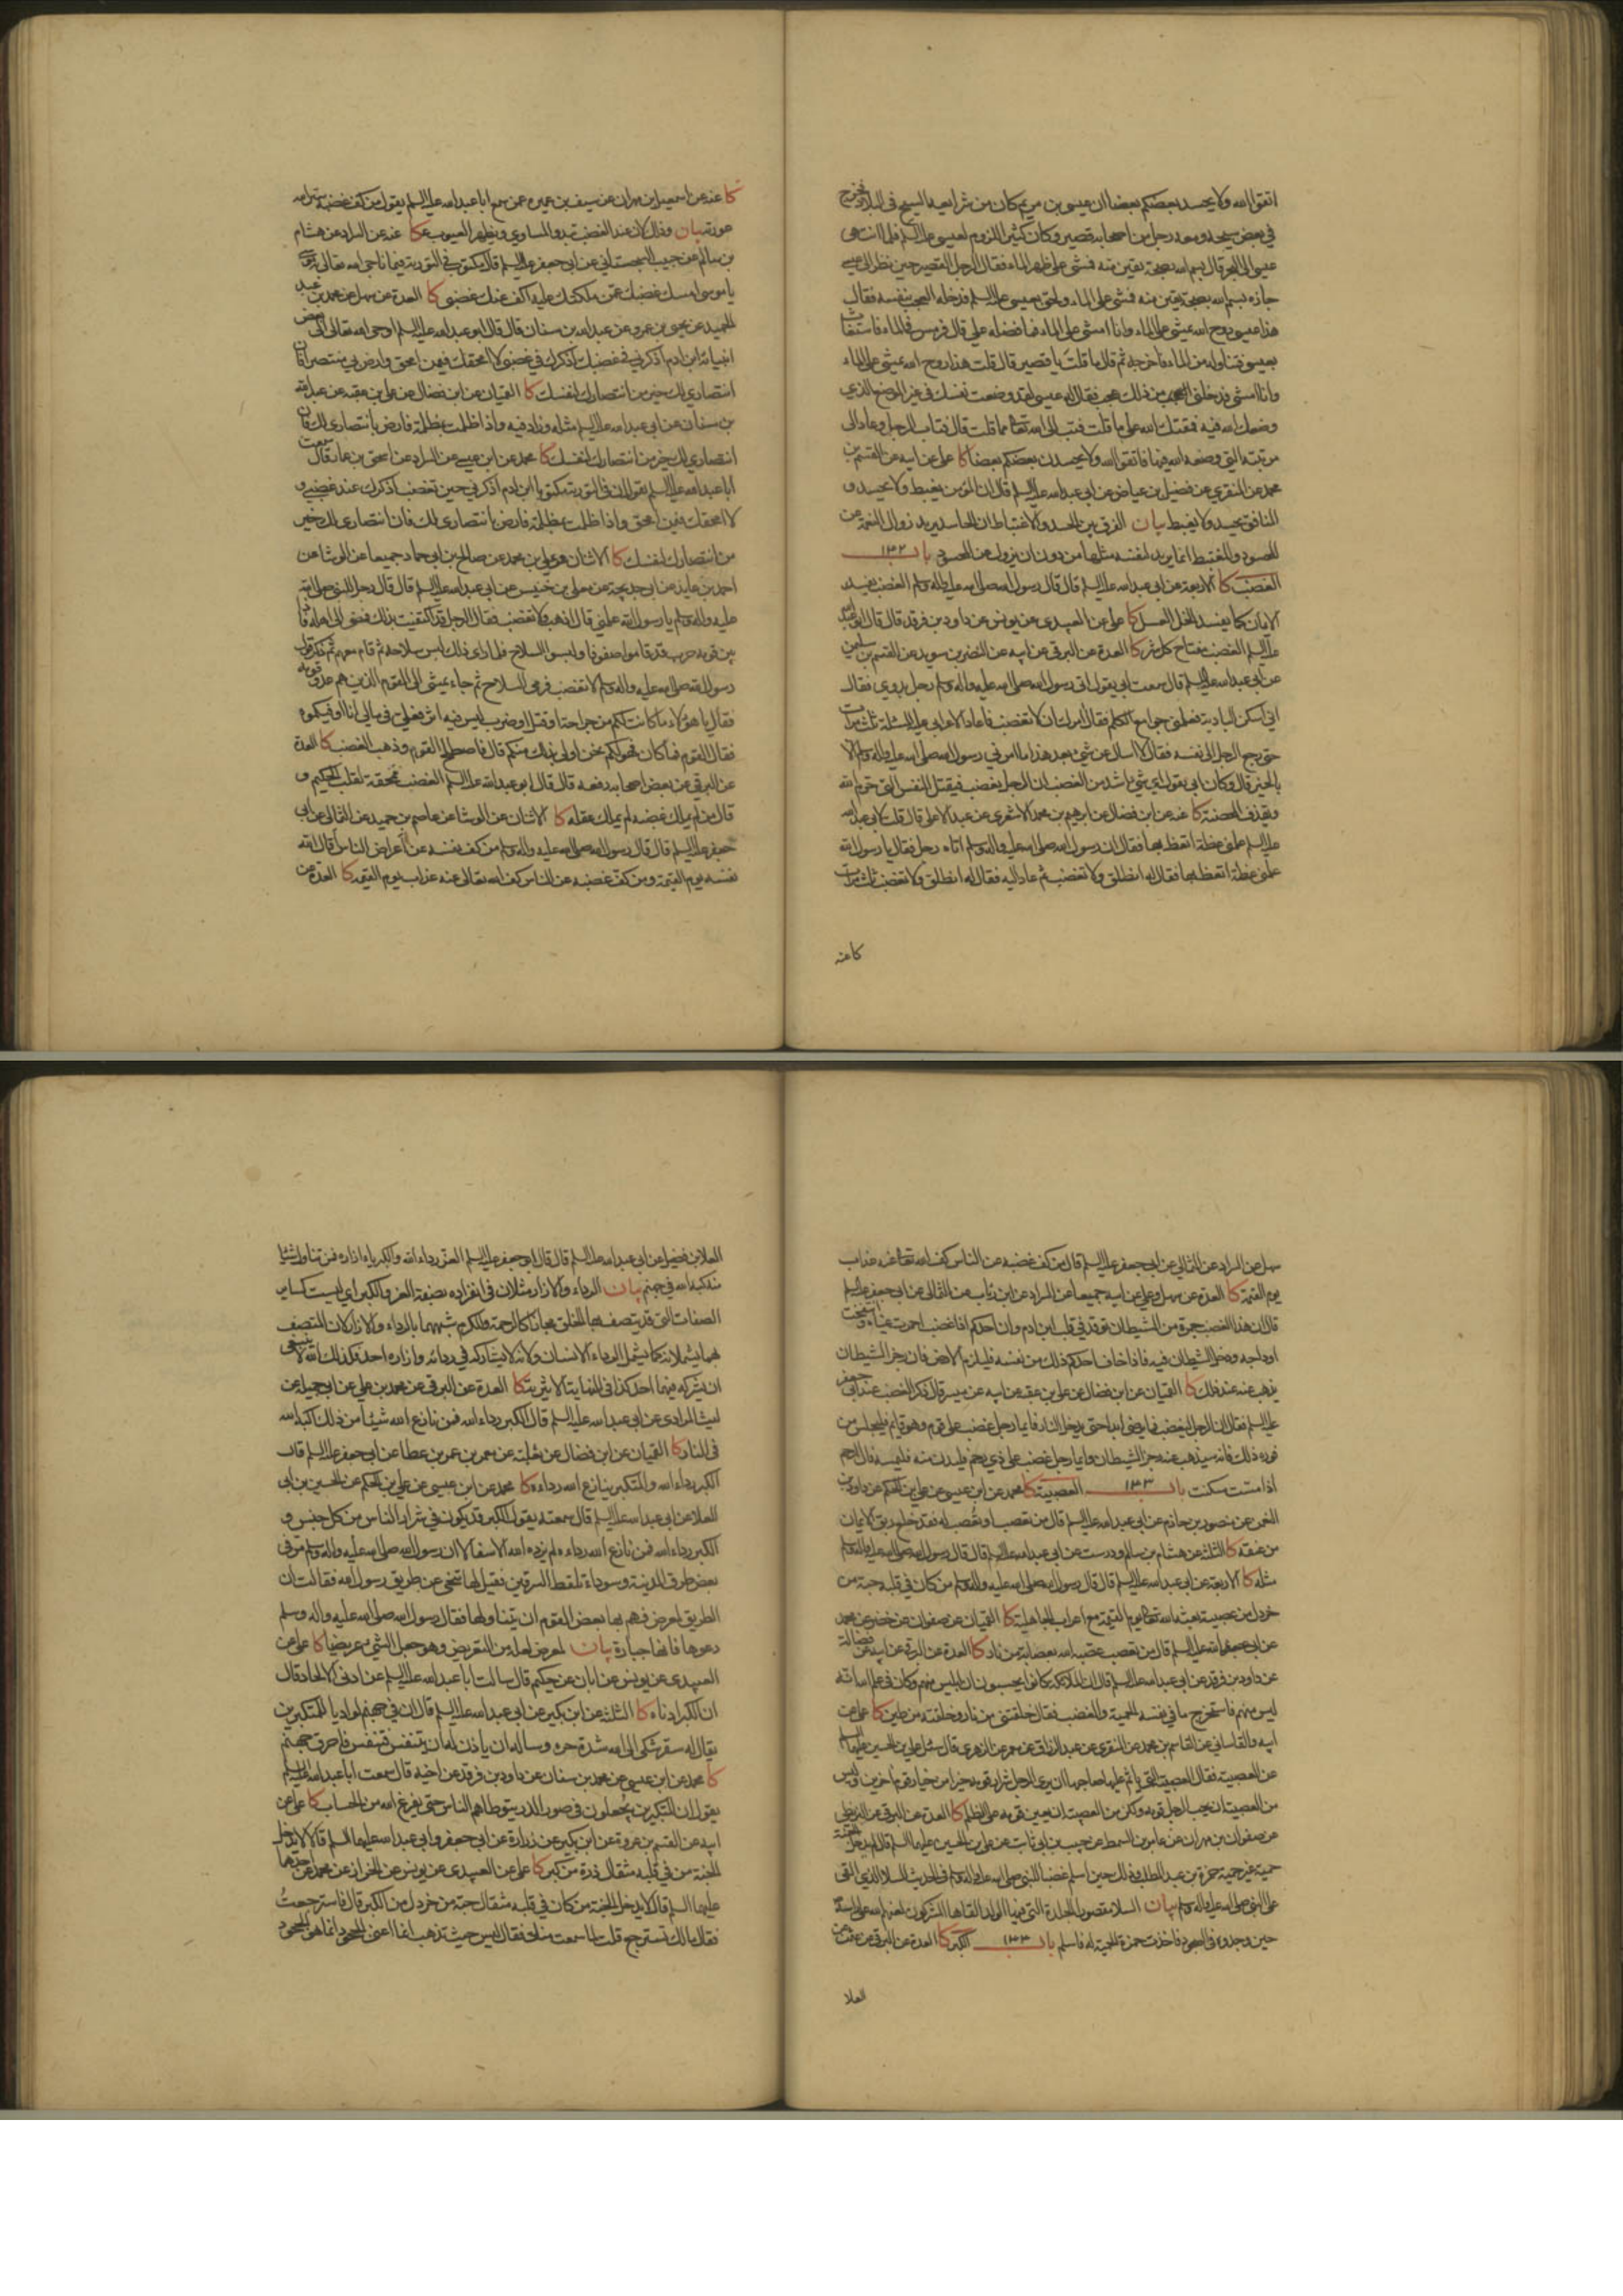 اتقوا الله ولا يحسد بعضكم بعضا ان عيسى بن مريم كان من شرايعه السيح في البلاد فخرج
في بعض سيحه ومعه رجل من اصحابه قصير وكان كثير اللزوم لعيسى عليه السلم فلما انتهى
عيسى الى البحر قال بسم الله بصحة يقين منه فمشى على ظهر الماء فقال الرجل القصير حين نظر الى عيسى
جازه بسم الله بصحة يقين منه فمشى على الماء ولحق بعيسى عليه السلم فدخله العجب بنفسه فقال
هذا عيسى روح الله يمشي على الماء وانا امشي على الماء فما فضله علي قال فرمس في الماء فاستغاث
بعيسى فتناوله من الماء فاخرجه ثم قال ما قلت يا قصير قال قلت هذا روح الله يمشي على الماء
وانا امشي فدخلني العجب من ذلك عجب فقال له عيسى لقد وضعت نفسك في غير الموضع الذي
وضعك الله فيه فمقتك الله على ما قلت فتب الى الله تعالى مما قلت قال فتاب الرجل وعاد الى
مرتبته التي وضعه الله فيها فاتقوا الله ولا يحسدن بعضكم بعضا كا علي عن ابيه عن القسم بن
محمد عن المنقري عن فضيل بن عياض عن ابي عبد الله عليه السلم قال ان المؤمن يغبط ولا يحسد و
المنافق يحسد ولا يغبط بيان الفرق بين الحسد والاغتباط ان الحاسد يريد زوال النعمة عن
المحسود والمغتبط انما يريد لنفسه مثلها من دون ان يزول عن المحسود باب ١٣٢
الغضب كا الاربعة عن ابي عبد الله عليه السلم قال قال رسول الله صلى الله عليه واله وسلم الغضب يفسد
الايمان كما يفسد الخل العسل كا علي عن العبيدي عن يونس عن داود بن فرقد قال قال ابو عبد الله
عليه السلم الغضب مفتاح كل شر كا العدة عن البرقي عن ابيه عن النضر بن سويد عن القسم بن سليمن
عن ابي عبد الله عليه السلم قال سمعت ابي يقول اتى رسول الله صلى الله عليه واله وسلم رجل بدوي فقال
اني اسكن البادية فعلمني جوامع الكلم فقال امرك ان لا تغضب فاعاد الاعرابي عليه المسئلة ثلث مرات
حتى رجع الرجل الى نفسه فقال لا اسال عن شيء بعد هذا ما امرني رسول الله صلى الله عليه واله وسلم الا
بالخير قال وكان ابي يقول اي شيء اشد من الغضب ان الرجل يغضب فيقتل النفس التي حرم الله
ويقذف المحصنة كا عنه عن ابن فضال عن ابرهيم بن محمد الاشعري عن عبد الاعلى قال قلت لابي عبد الله
عليه السلم علمني عظة اتعظ بها فقال ان رسول الله صلى الله عليه واله وسلم اتاه رجل فقال يا رسول الله
علمني عظة اتعظ بها فقال له انطلق ولا تغضب ثم عاد اليه فقال له انطلق ولا تغضب ثلث مرات
كا عنه
كا عنه عن اسمعيل بن مهران عن سيف بن عميرة عمن سمع ابا عبد الله عليه السلم يقول من كف غضبه ستر الله
عورته بيان وذلك لان عند الغضب تبدو المساوي وتظهر العيوب كا عنه عن السراد عن هشام
بن سالم عن حبيب السجستاني عن ابي جعفر عليه السلم قال مكتوب في التورية فيما ناجى الله تعالى به موسى
يا موسى امسك غضبك عمن ملكتك عليه اكف عنك غضبي كا العدة عن سهل عن محمد بن عبد
الحميد عن يحيى بن عمرو عن عبد الله بن سنان قال قال ابو عبد الله عليه السلم اوحى الله تعالى الى بعض
انبيائه ابن ادم اذكرني في غضبك اذكرك في غضبي لا امحقك فيمن امحق وارض بي منتصرا فان
انتصاري لك خير من انتصارك لنفسك كا القميان عن ابن فضال عن علي بن عقبة عن عبد الله
بن سنان عن ابي عبد الله عليه السلم مثله وزاد فيه واذا ظلمت بمظلمة فارض بانتصاري لك فان
انتصاري لك خير من انتصارك لنفسك كا محمد عن ابن عيسى عن السراد عن اسحق بن عمار قال سمعت
ابا عبد الله عليه السلم يقول ان في التورية مكتوبا ابن ادم اذكرني حين تغضب اذكرك عند غضبي و
لا امحقك فيمن امحق واذا ظلمت بمظلمة فارض بانتصاري لك فان انتصاري لك خير
من انتصارك لنفسك كا الاثنان وعلي بن محمد عن صالح بن ابي حماد جميعا عن الوشا عن
احمد بن عايذ عن ابي خديجة عن معلى بن خنيس عن ابي عبد الله عليه السلم قال قال رجل للنبي صلى الله
عليه واله وسلم يا رسول الله علمني قال اذهب ولا تغضب فقال الرجل قد اكتفيت بذلك فمضى الى اهله فاذا
بين قومه حرب قد قاموا صفوفا ولبسوا السلاح فلما راى ذلك لبس سلاحه ثم قام معهم ثم ذكر قول
رسول الله صلى الله عليه واله وسلم لا تغضب فرمى السلاح ثم جاء يمشي الى القوم الذين هم عدو قومه
فقال يا هؤلاء ما كانت لكم من جراحة او قتل او ضرب ليس فيه اثر فعلي في مالي انا اوفيكموه
فقال القوم فما كان فهو لكم نحن اولى بذلك منكم قال فاصطلح القوم وذهب الغضب كا العدة
عن البرقي عن بعض اصحابه رفعه قال قال ابو عبد الله عليه السلم الغضب ممحقة لقلب الحكيم و
قال من لم يملك غضبه لم يملك عقله كا الاثنان عن الوشا عن عاصم بن حميد عن الثمالي عن ابي
جعفر عليه السلم قال قال رسول الله صلى الله عليه واله وسلم من كف نفسه عن اعراض الناس اقال الله
نفسه يوم القيمة ومن كف غضبه عن الناس كف الله تعالى عنه عذاب يوم القيمة كا العدة عن
سهل عن السراد عن الثمالي عن ابي جعفر عليه السلم قال من كف غضبه عن الناس كف الله تعالى عنه عذاب
يوم القيمة كا العدة عن سهل وعلي عن ابيه جميعا عن السراد عن ابن رئاب عن الثمالي عن ابي جعفر عليه السلم
قال ان هذا الغضب جمرة من الشيطان توقد في قلب ابن ادم وان احدكم اذا غضب احمرت عيناه وانتفخت
اوداجه ودخل الشيطان فيه فاذا خاف احدكم ذلك من نفسه فليلزم الارض فان رجز الشيطان
يذهب عنه عند ذلك كا القميان عن ابن فضال عن علي بن عقبة عن ابيه عن ميسر قال ذكر الغضب عند ابي جعفر
عليه السلم فقال ان الرجل ليغضب فما يرضى ابدا حتى يدخل النار فايما رجل غضب على قوم وهو قائم فليجلس من
فوره ذلك فانه سيذهب عنه رجز الشيطان وايما رجل غضب على ذي رحم فليدن منه فليمسه فان الرحم
اذا مست سكنت باب ١٣٣ العصبية كا محمد عن ابن عيسى عن علي بن الحكم عن داود بن
النعمن عن منصور بن حازم عن ابي عبد الله عليه السلم قال من تعصب او تعصب له فقد خلع ربق الايمان
من عنقه كا الثلثة عن هشام بن سالم ودرست عن ابي عبد الله عليه السلم قال قال رسول الله صلى الله عليه واله وسلم
مثله كا الاربعة عن ابي عبد الله عليه السلم قال قال رسول الله صلى الله عليه واله وسلم من كان في قلبه حبة من
خردل من عصبية بعثه الله تعالى يوم القيمة مع اعراب الجاهلية كا القميان عن صفوان عن خضر عن محمد
عن ابي عبد الله عليه السلم قال من تعصب عصبه الله بعصابة من نار كا العدة عن البرقي عن ابيه عن فضالة
عن داود بن فرقد عن ابي عبد الله عليه السلم قال ان الملائكة كانوا يحسبون ان ابليس منهم وكان في علم الله انه
ليس منهم فاستخرج ما في نفسه بالحمية والغضب فقال خلقتني من نار وخلقته من طين كا علي عن
ابيه والقاساني عن القاسم بن محمد عن المنقري عن عبد الرزاق عن معمر عن الزهري قال سئل علي بن الحسين عليهما السلم
عن العصبية فقال العصبية التي ياثم عليها صاحبها ان يرى الرجل شرار قومه خيرا من خيار قوم اخرين وليس
من العصبية ان يحب الرجل قومه ولكن من العصبية ان يعين قومه على الظلم كا العدة عن البرقي عن البزنطي
عن صفوان بن مهران عن عامر بن السمط عن حبيب بن ابي ثابت عن علي بن الحسين عليهما السلم قال لم يدخل الجنة
حمية غير حمية حمزة بن عبد المطلب وذلك حين اسلم غضبا للنبي صلى الله عليه واله وسلم في حديث السلا الذي القي
على النبي صلى الله عليه واله وسلم بيان السلا مقصورا الجلدة التي فيها الولد القاها المشركون لعنهم الله على
حين وجدوه في السجود فاخذت حمزة الحمية له فاسلم باب ١٣٣ الكبر كا العدة عن البرقي عن عثمن عن
العلا
العلا بن فضيل عن ابي عبد الله عليه السلم قال قال ابو جعفر عليه السلم العز رداء الله والكبرياء ازاره فمن تناول شيئا
منه اكبه الله في جهنم بيان الرداء والازار مثلان في انفراده بصفة العز والكبر اي ليست كساير
الصفات التي قد يتصف بها الخلق مجازا كالرحمة والكرم شبههما بالرداء والازار لان المتصف
بهما يشملانه كما يشمل الرداء الانسان ولانه لا يشاركه في ردائه وازاره احد فكذلك الله لا ينبغي
ان يشركه فيهما احد كذا في النهاية الاثيرية كا العدة عن البرقي عن محمد بن علي عن ابي جميلة عن
ليث المرادي عن ابي عبد الله عليه السلم قال الكبر رداء الله فمن نازع الله شيئا من ذلك اكبه الله
في النار كا القميان عن ابن فضال عن ثعلبة عن معمر بن عمر بن عطا عن ابي جعفر عليه السلم قال
الكبر رداء الله والمتكبر ينازع الله رداءه كا محمد عن ابن عيسى عن علي بن الحكم عن الحسين بن ابي
العلا عن ابي عبد الله عليه السلم قال سمعته يقول الكبر قد يكون في شرار الناس من كل جنس و
الكبر رداء الله فمن نازع الله رداءه لم يزده الله الا سفالا ان رسول الله صلى الله عليه واله وسلم مر في
بعض طرق المدينة وسوداء تلقط السرقين فقيل لها تنحي عن طريق رسول الله فقالت ان
الطريق لمعرض فهم بها بعض القوم ان يتناولها فقال رسول الله صلى الله عليه واله وسلم
دعوها فانها جبارة بيان لمعرض لعله من التعريض وهو جعل الشيء عريضا كا علي عن
العبيدي عن يونس عن ابان عن حكيم قال سالت ابا عبد الله عليه السلم عن ادنى الالحاد قال
ان الكبر ادناه كا الثلثة عن ابن بكير عن ابي عبد الله عليه السلم قال ان في جهنم لواديا للمتكبرين
يقال له سقر شكى الى الله شدة حره وساله ان ياذن له ان يتنفس فتنفس فاحرق جهنم
كا محمد عن ابن عيسى عن محمد بن سنان عن داود بن فرقد عن اخيه قال سمعت ابا عبد الله عليه السلم
يقول ان المتكبرين يجعلون في صور الذر يتوطاهم الناس حتى يفرغ الله من الحساب كا علي عن
ابيه عن القسم بن عروة عن ابن بكير عن زرارة عن ابي جعفر وابي عبد الله عليهما السلم قالا لا يدخل
الجنة من في قلبه مثقال ذرة من كبر كا علي عن العبيدي عن يونس عن الخراز عن محمد عن احدهما
عليهما السلم قال لا يدخل الجنة من كان في قلبه مثقال حبة من خردل من الكبر قال فاسترجعت
فقال مالك تسترجع قلت لما سمعت منك فقال ليس حيث تذهب انما اعني الجحود انما هو الجحود